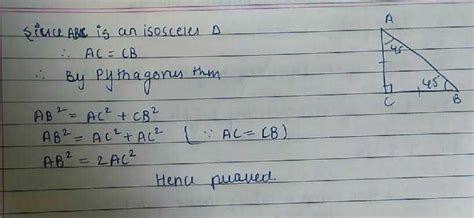 Since ABC is an isosceles Δ
∴ AC = CB
∴ By Pythagorus thm
AB² = AC² + CB²
AB² = AC² + AC² (∵ AC = CB)
AB² = 2AC²
Hence proved
A
45
45
C
B